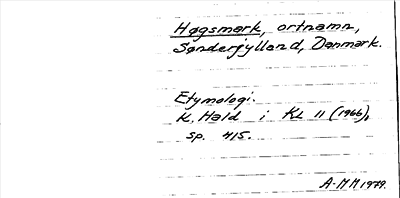 Høgsmark, ortnamn,
Sønderjylland, Danmark.
Etymologi.
K. Hald i KL 11 (1966),
sp. 415.
A-MM 1979.